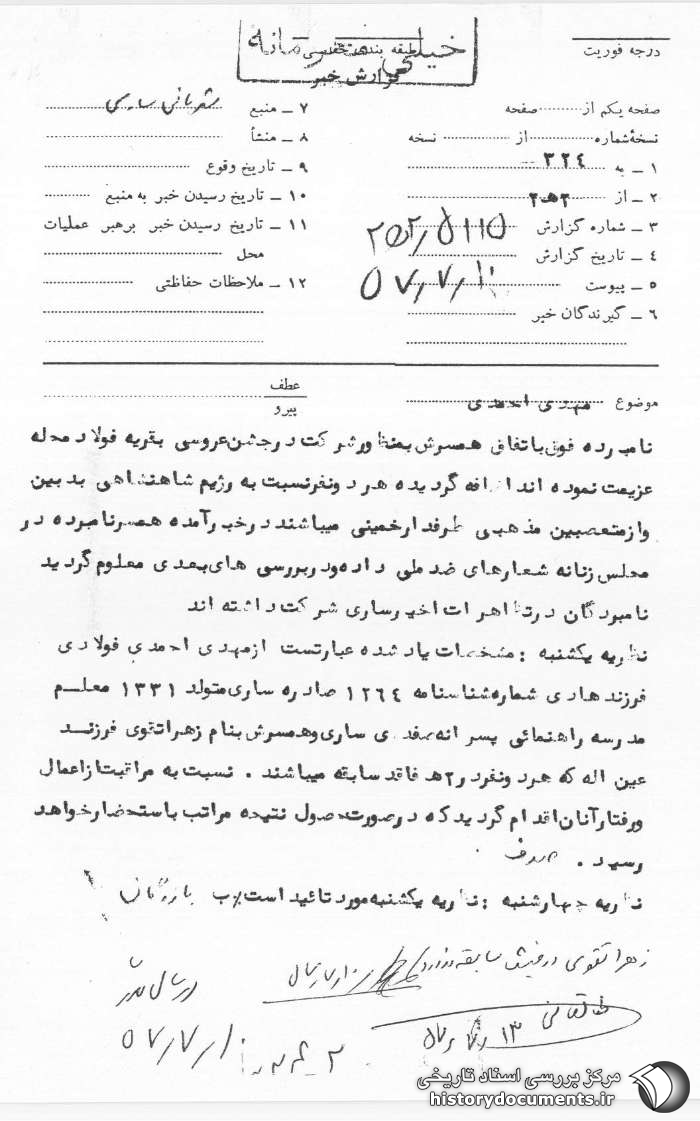 درجه فوریت
طبقه بندی حفاظتی
خیلی محرمانه
گزارش خبر
صفحه یکم از صفحه
نسخهٔ شماره از نسخه
۱ ـ به ۳۲۴
۲ ـ از ۲هـ۲
۳ ـ شماره گزارش
۴ ـ تاریخ گزارش ۵۷/۷/۱۰
۵ ـ پیوست
۶ ـ گیرندگان خبر
۷ ـ منبع شهربانی ساری
۸ ـ منشأ
۹ ـ تاریخ وقوع
۱۰ ـ تاریخ رسیدن خبر به منبع
۱۱ ـ تاریخ رسیدن خبر برهبر عملیات
محل
۱۲ ـ ملاحظات حفاظتی
موضوع مهدی احمدی
عطف
پیرو
نامبرده فوق باتفاق همسرش بمنظور شرکت در جشن عروسی بقریه فولاد محله
عزیمت نموده اند اضافه گردیده هر دونفر نسبت به رژیم شاهنشاهی بدبین
واز متعصبین مذهبی طرفدار خمینی میباشند در خبر آمده همسر نامبرده در
مجلس زنانه شعارهای ضد ملی داده و در بررسی های بعدی معلوم گردید
نامبردگان در تظاهرات اخیر ساری شرکت داشته اند
نظریه یکشنبه : مشخصات یاد شده عبارتست از مهدی احمدی فولادی
فرزند هادی شماره شناسنامه ۱۲۶۴ صادره ساری متولد ۱۳۳۱ معلم
مدرسه راهنمائی پسرانه صفدری ساری و همسرش بنام زهرا تقوی فرزند
عین اله که هر دونفر در ۲هـ فاقد سابقه میباشند . نسبت به مراقبت از اعمال
و رفتار آنان اقدام گردید که در صورت حصول نتیجه مراتب باستحضار خواهد
رسید .
نظریه چهارشنبه : نظریه یکشنبه مورد تائید است
زهرا تقوی در فیش سابقه ندارد
طالقانی
۵۷/۷/۱۰
مرکز بررسی اسناد تاریخی
historydocuments.ir